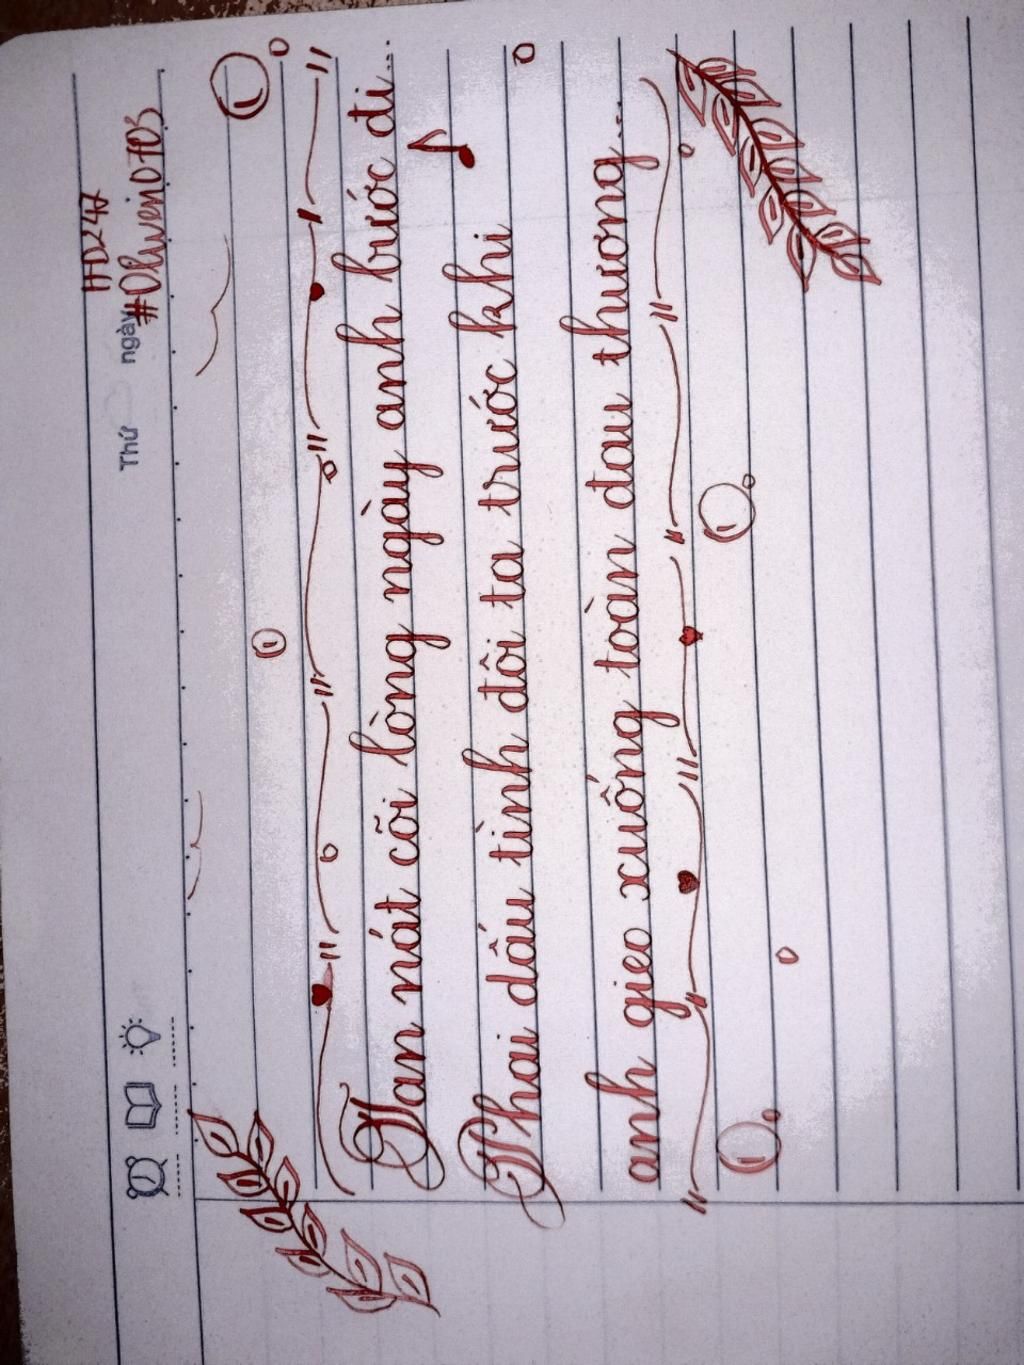 HD247
#Olwein0703
Thứ ngày
Tan nát cõi lòng ngày anh bước đi...
Phai dấu tình đôi ta trước khi
anh gieo xuống toàn đau thương...